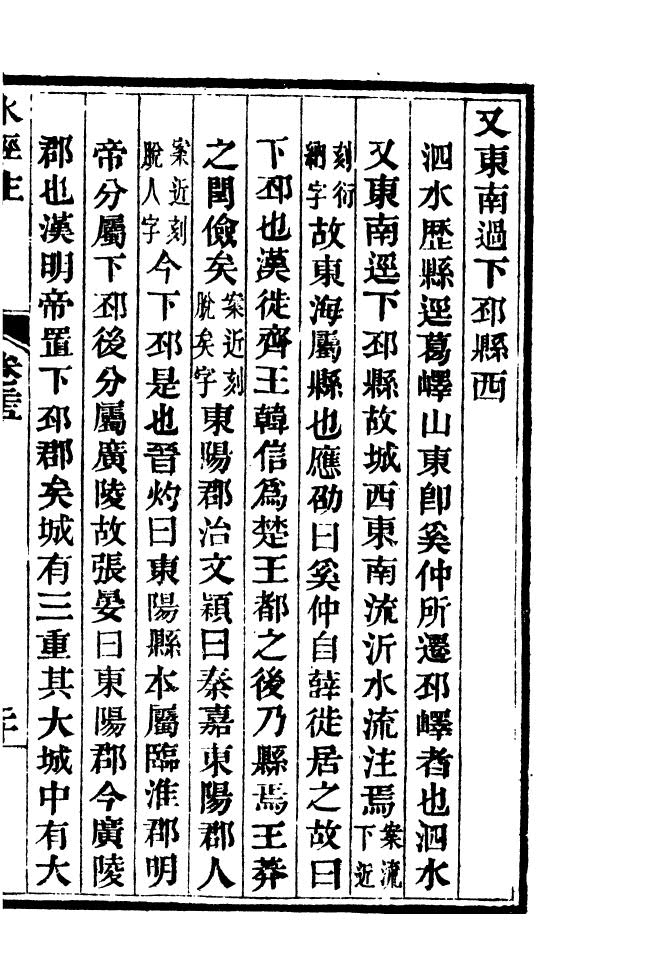 又東南過下邳縣西
泗水歷縣逕葛嶧山東卽奚仲所遷邳嶧者也泗水
又東南逕下邳縣故城西東南流沂水流注焉案流下近
刻衍納字故東海屬縣也應劭曰奚仲自薛徙居之故曰
下邳也漢徙齊王韓信爲楚王都之後乃縣焉王莽
之閏儉矣案近刻脫矣字東陽郡治文穎曰秦嘉東陽郡人
案近刻脫人字今下邳是也晉灼曰東陽縣本屬臨淮郡明
帝分屬下邳後分屬廣陵故張晏曰東陽郡今廣陵
郡也漢明帝置下邳郡矣城有三重其大城中有大
水經注